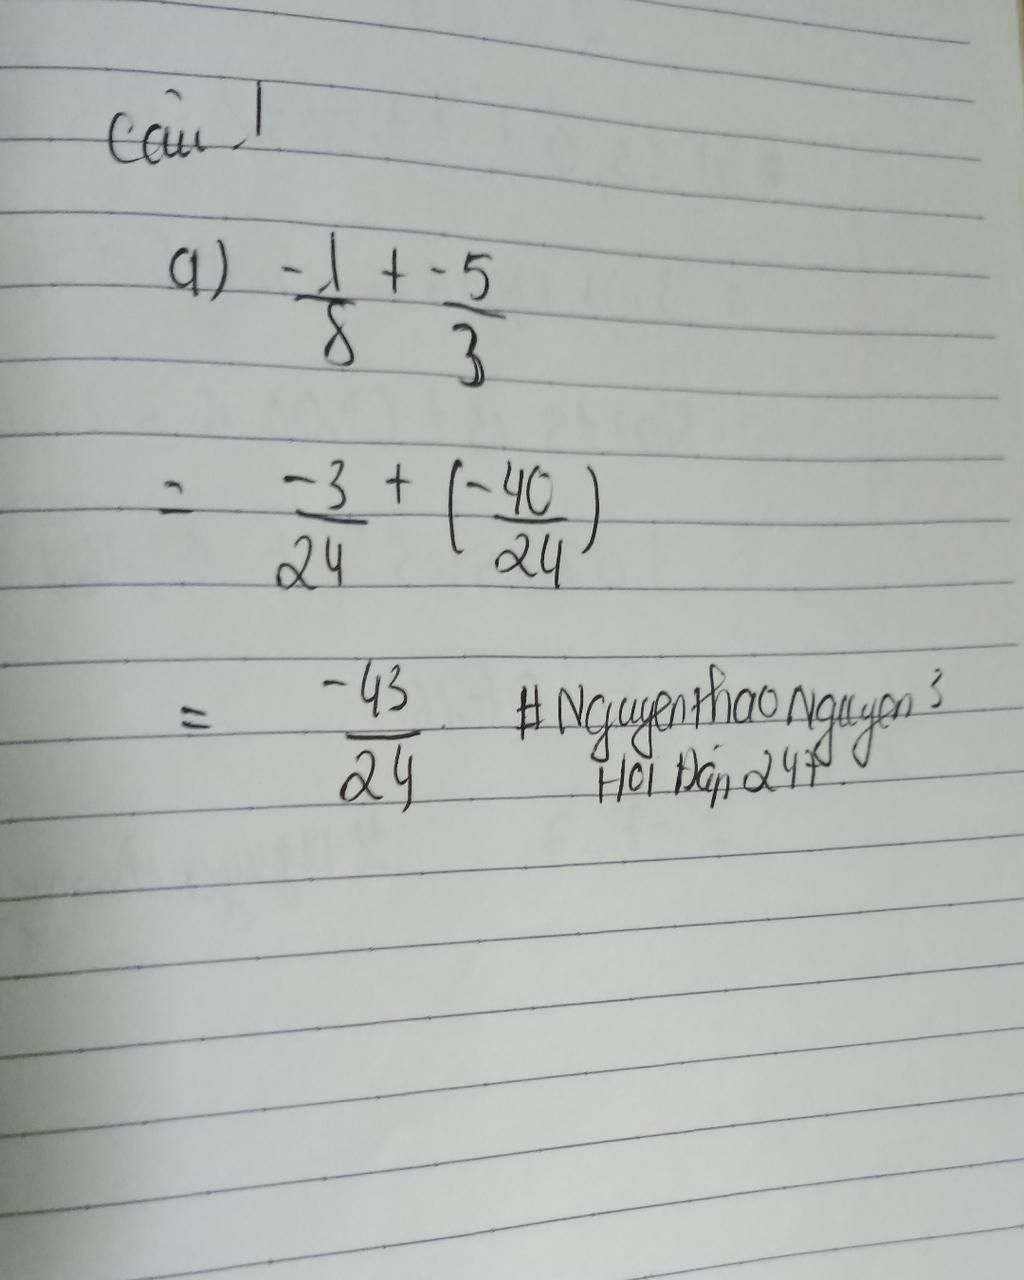 Câu 1
a) -1/8 + -5/3
= -3/24 + (-40/24)
= -43/24 #Nguyenthao Nguyen3
Hoi Đáp 247